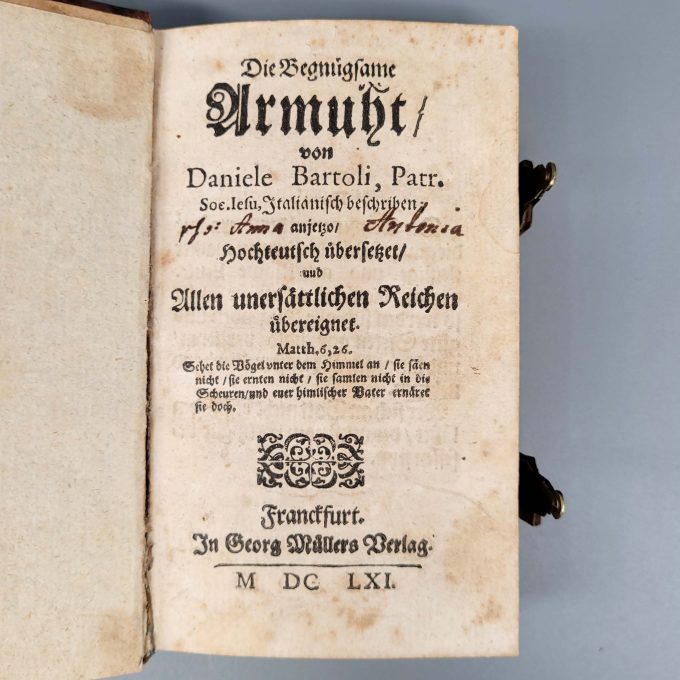 Die Begnügsame
Armuht/
von
Daniele Bartoli, Patr.
Soc. Iesu, Italianisch beschriben/
Anna anjetzo/ Antonia
Hochteutsch übersetzet/
und
Allen unersättlichen Reichen
übereignet.
Matth. 6, 26.
Sehet die Vögel vnter dem Himmel an / sie säen
nicht / sie ernten nicht / sie samlen nicht in die
Scheuren/und euer himlischer Vater ernäret
sie doch.
Franckfurt.
In Georg Müllers Verlag.
M DC LXI.